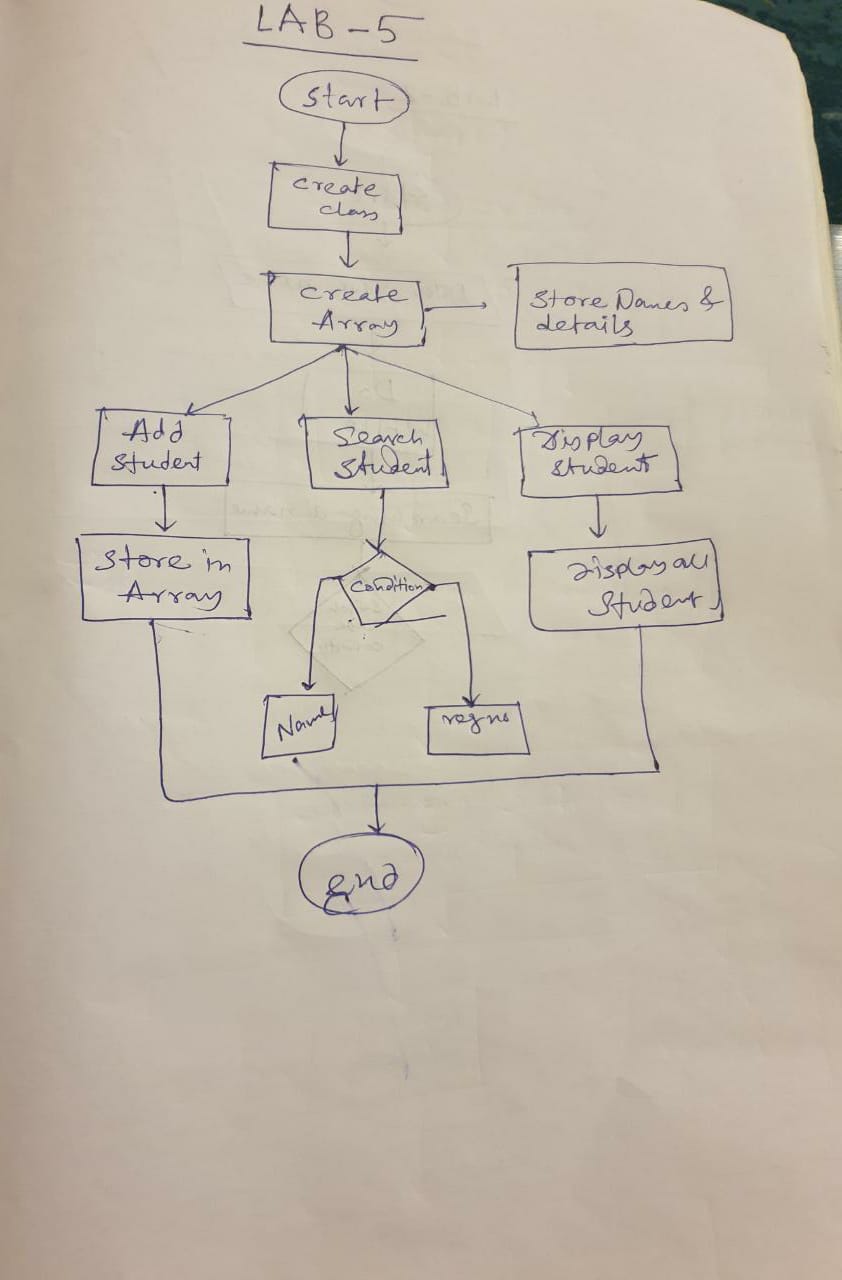 LAB-5
Start
create
class
create
Array
Store Names &
details
Add
Student
Search
Student
Display
Student
Store in
Array
Condition
Display all
Student
Name
regno
end